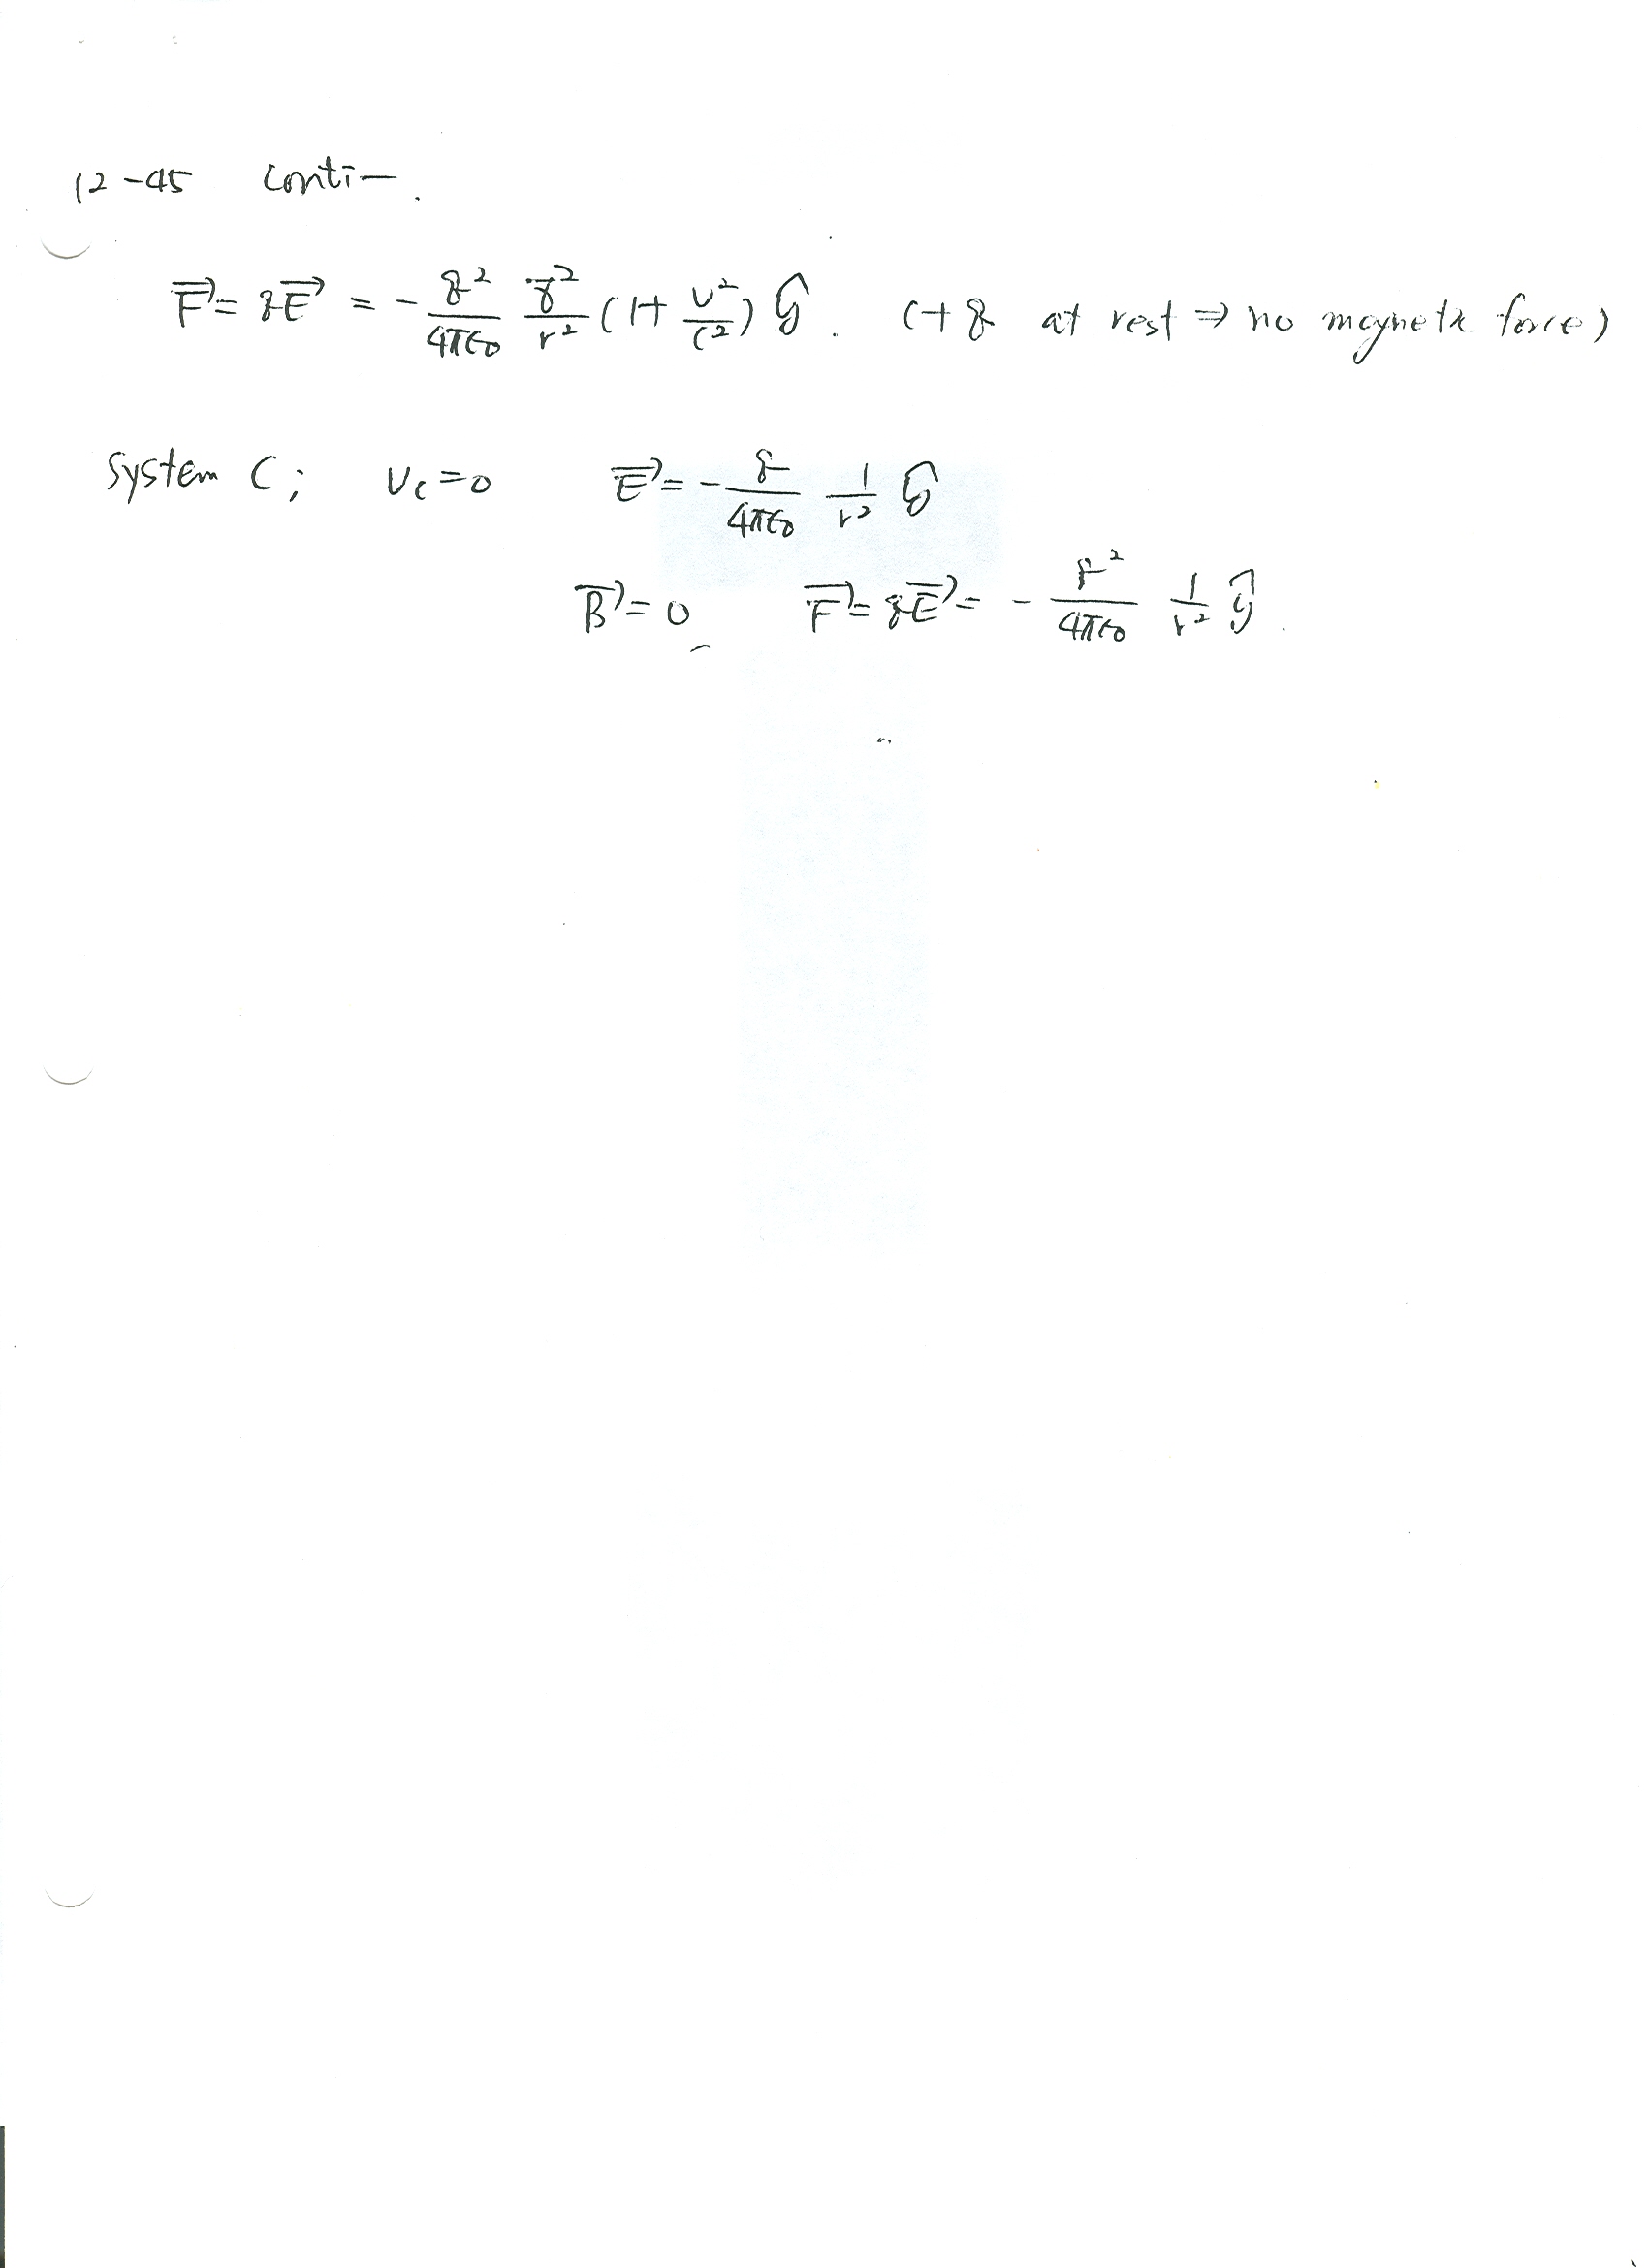 12-45 conti—.
F⃗ = qE⃗ = - q²/4πε₀ γ²/r² (1+ v²/c²) ŷ. (+q at rest ⇒ no magnetic force)
System C; v_c=0 E⃗ = - q/4πε₀ 1/r² ŷ
B⃗ = 0 F⃗ = qE⃗ = - q²/4πε₀ 1/r² ŷ.